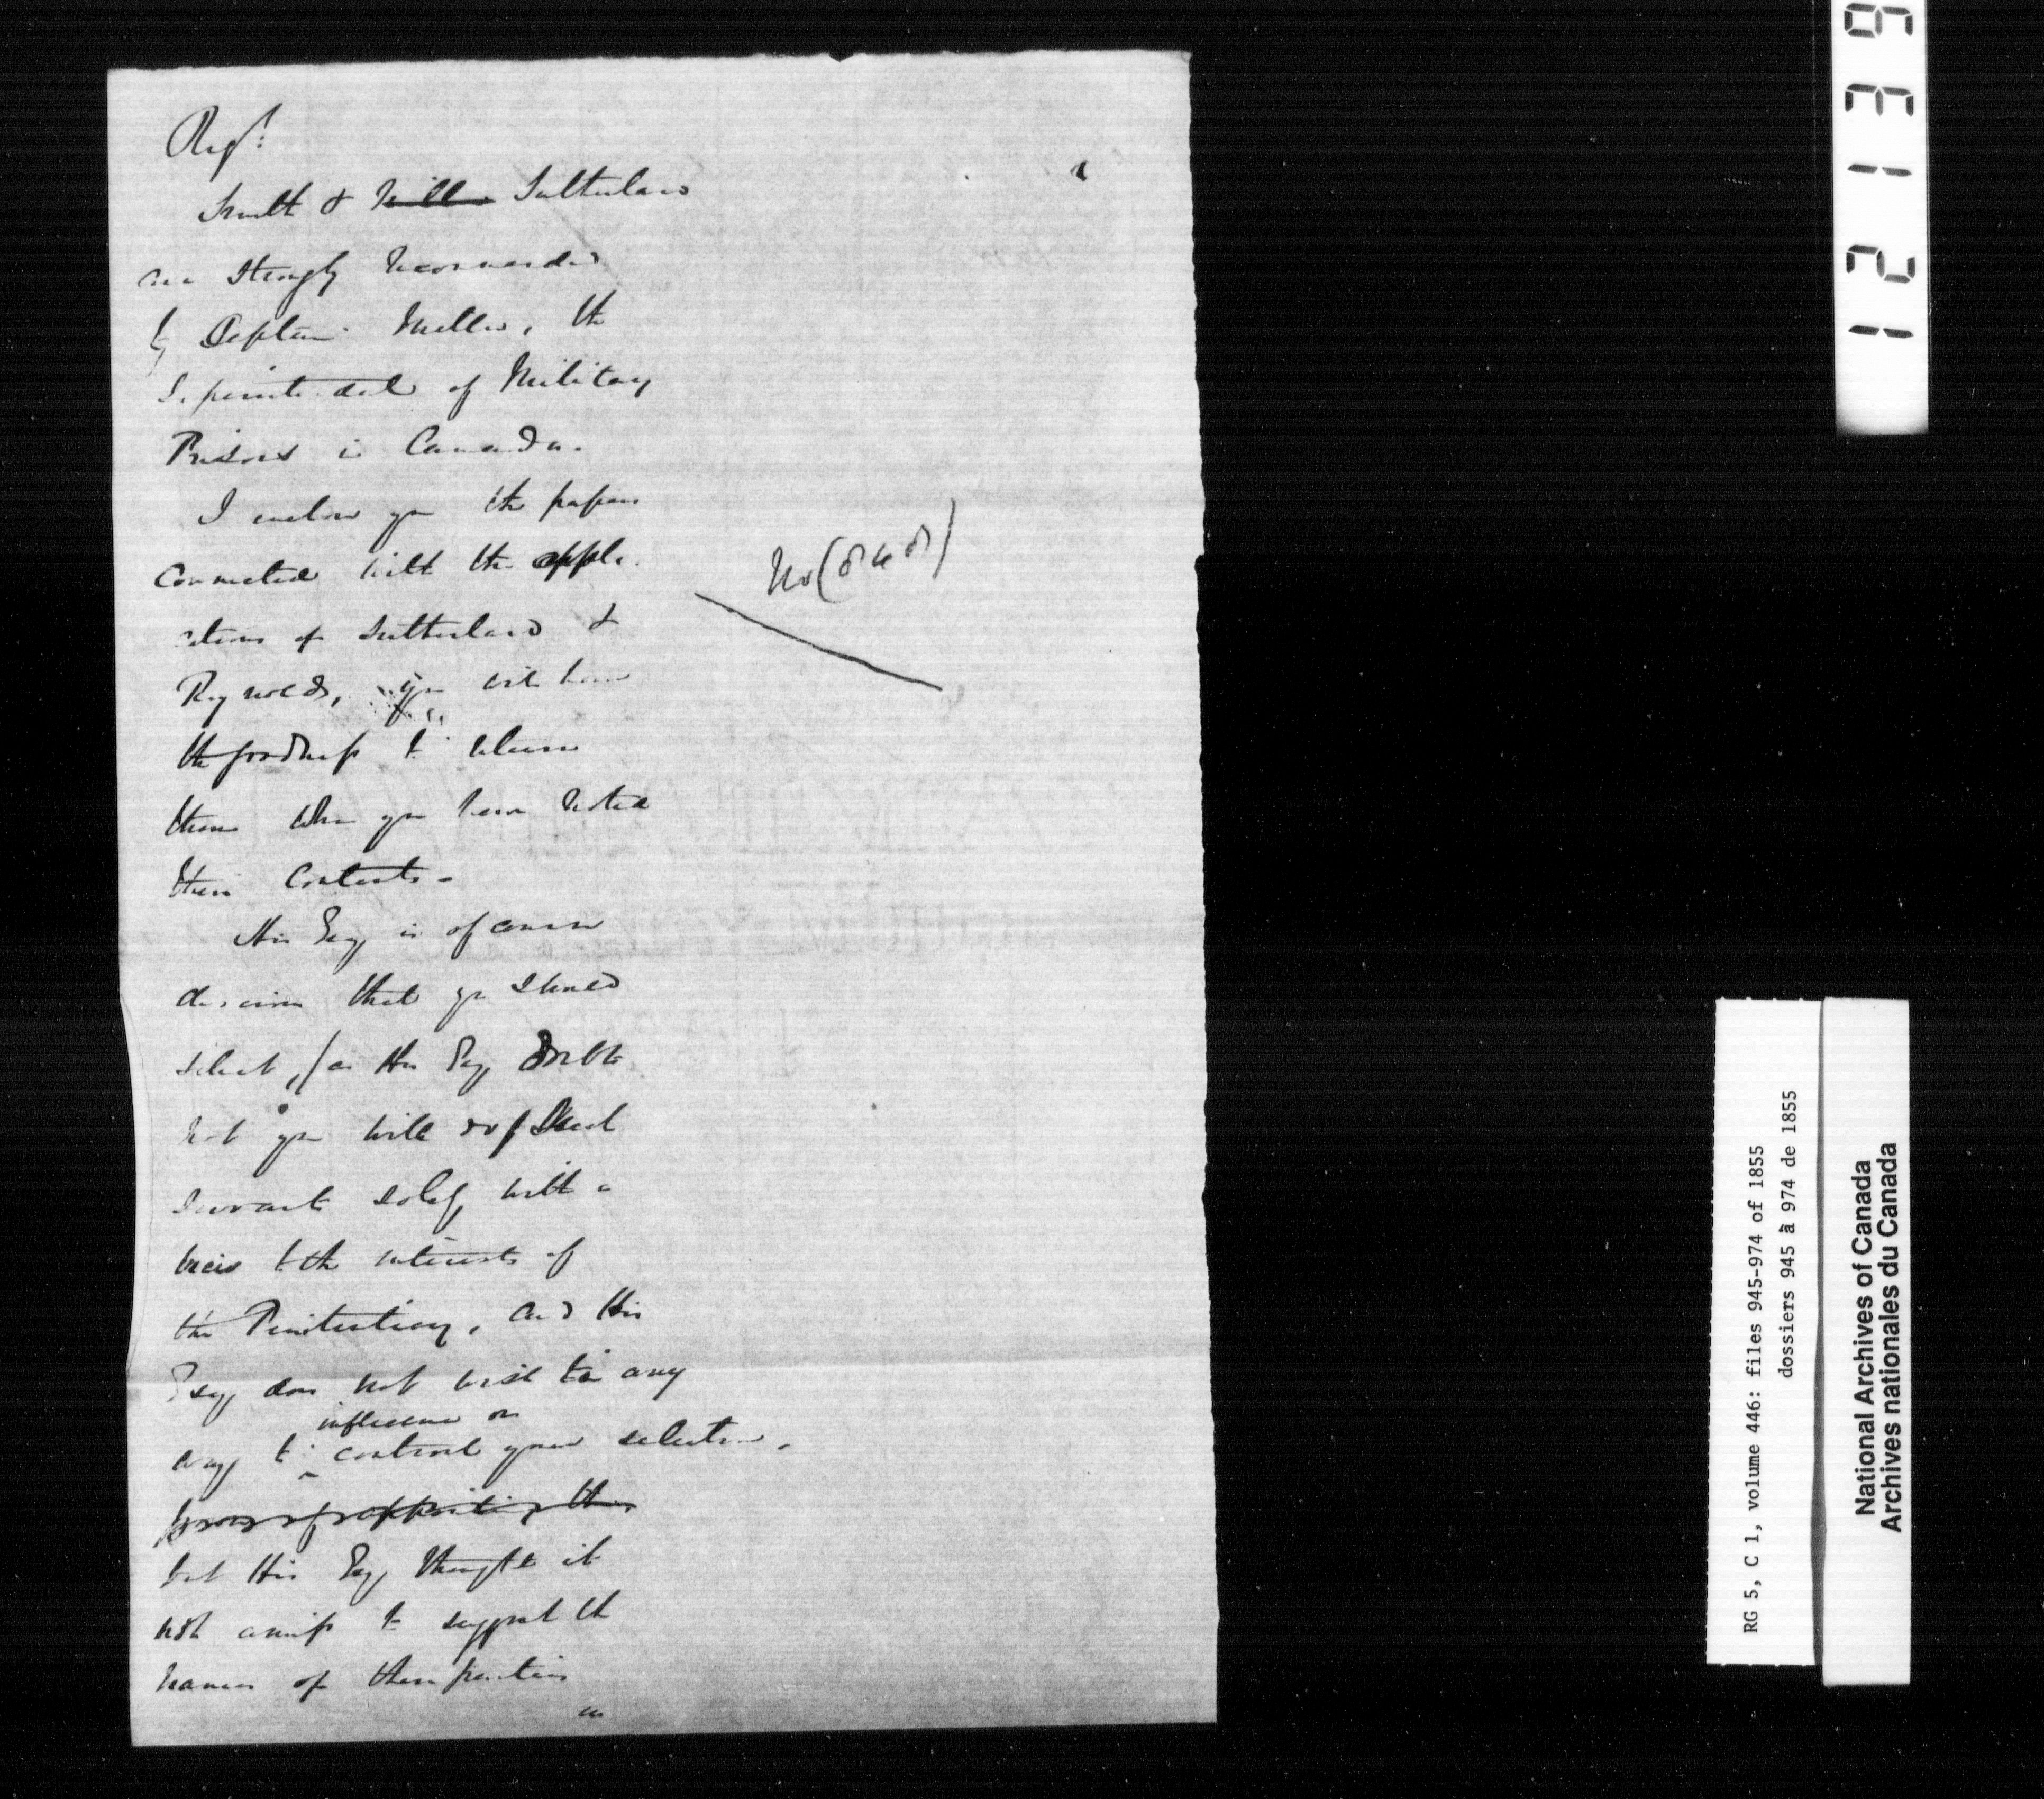 Regt:
Smith & ~~Mille~~ Sutherland
are Strongly Recommended
by Captain Miller, the
Superintendent of Military
Prisons in Canada.
I enclose you the papers
Connected with the appli-
cations of Sutherland &
Reynolds, you will have
the goodness to return
them when you have noted
their Contents -
His Excy is of course
desirous that you should
select, (as His Excy doubts
not you will do) Such
Servants solely with a
view to the interests of
the Penitentiary, and His
Excy does not wish in any
influence or
way to control your selection,
but His Excy thought it
not amiss to suggest the
names of these parties
as
No (848)
121319
RG 5, C 1, volume 446: files 945-974 of 1855
dossiers 945 à 974 de 1855
National Archives of Canada
Archives nationales du Canada